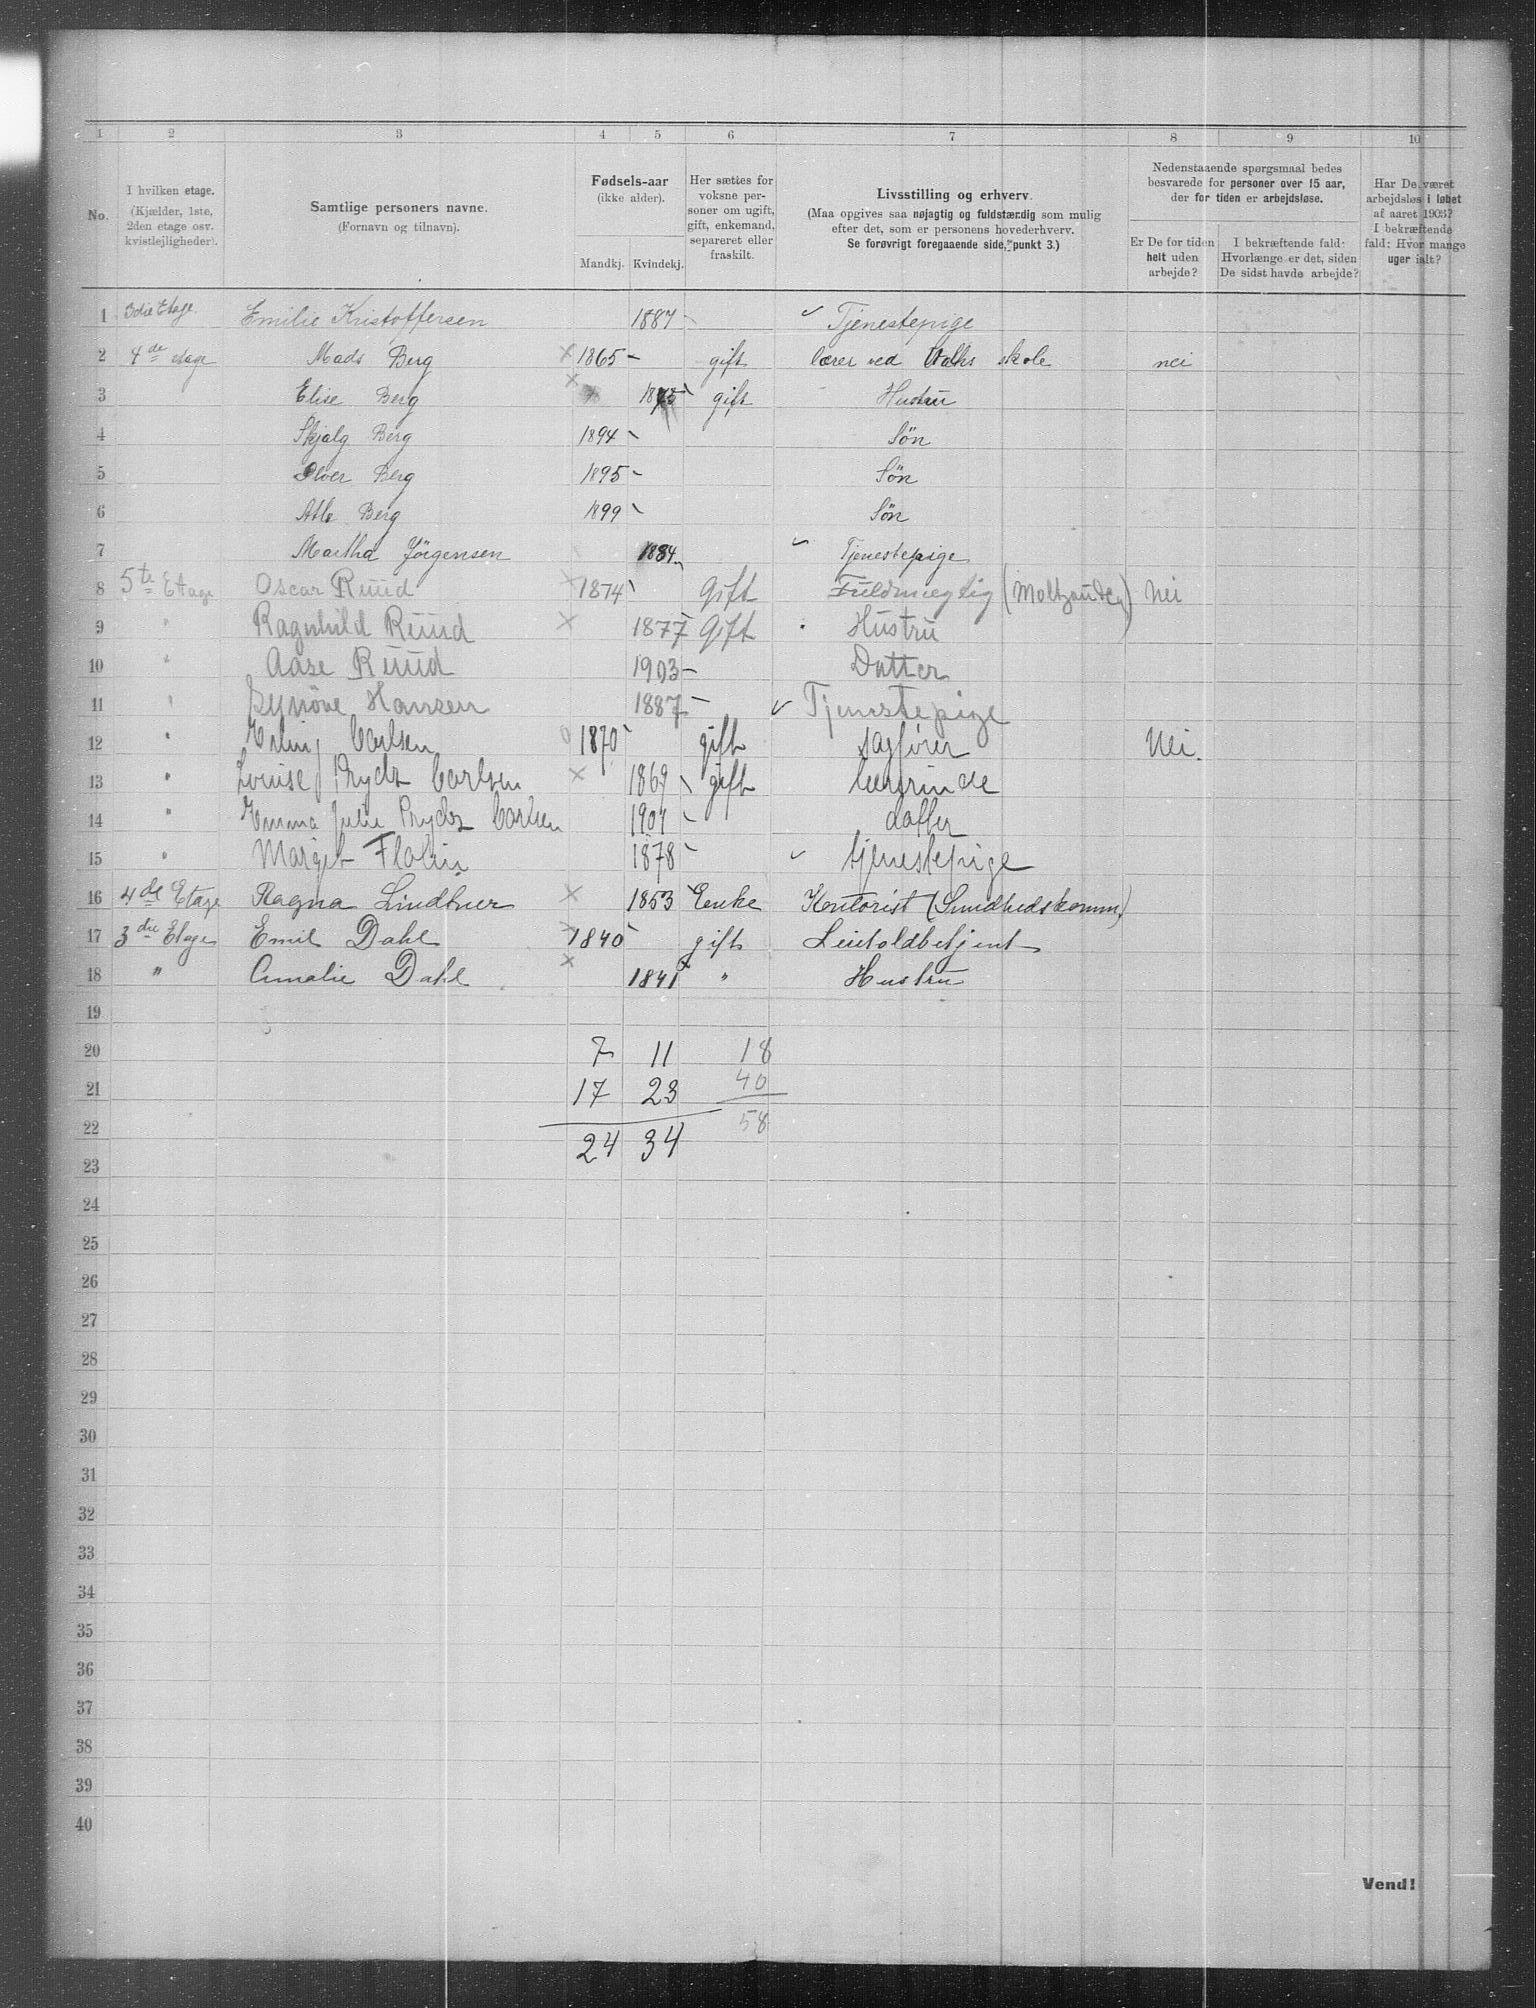 1 2 3 4 5 6 7 8 9 10
No.
I hvilken etage.
(Kjælder, 1ste,
2den etage osv.
kvistlejligheder).
Samtlige personers navne.
(Fornavn og tilnavn).
Fødsels-aar
(ikke alder).
Mandkj. Kvindekj.
Her sættes for
voksne per-
soner om ugift,
gift, enkemand,
separeret eller
fraskilt.
Livsstilling og erhverv.
(Maa opgives saa nøjagtig og fuldstændig som mulig
efter det, som er personens hovederhverv.
Se forøvrigt foregaaende side, punkt 3.)
Nedenstaaende spørgsmaal bedes
besvarede for personer over 15 aar,
der for tiden er arbejdsløse.
Er De for tiden
helt uden
arbejde?
I bekræftende fald:
Hvorlænge er det, siden
De sidst havde arbejde?
Har De været
arbejdsløs i løbet
af aaret 1903?
I bekræftende
fald: Hvor mange
uger ialt?
1 3die Etage Emilie Kristoffersen 1887 ✓ Tjenestepige
2 4de etage Mads Berg × 1865 gift lærer ved skole nei
3 Elise Berg × 1875 gift Hustru
4 Skjalg Berg 1894 Søn
5 Berg 1895 Søn
6 Atle Berg 1899 Søn
7 Martha Jörgensen 1884 ✓ Tjenestepige
8 5te Etage Oscar Ruud × 1874 Gift Fuldmægtig Nei
9 " Ragnhild Ruud × 1877 Gift Hustru
10 " Aase Ruud 1903 Datter
11 " Synöve Hansen 1887 ✓ Tjenestepige
12 " Carlsen 0 1870 gift sagfører Nei.
13 " Louise Prydz Carlsen × 1869 gift lærerinde
14 " Emma Julie Prydz Carlsen 1901 datter
15 " Margit 1878 ✓ tjenestepige
16 4de Etage Ragna Lindtner × 1853 Enke Kontorist (Sundhedskomm)
17 3die Etage Emil Dahl × 1840 gift
18 " Amalie Dahl × 1841 " Hustru
19
20 7 11 18
21 17 23 40
22 24 34 58
23
24
25
26
27
28
29
30
31
32
33
34
35
36
37
38
39
40
Vend!